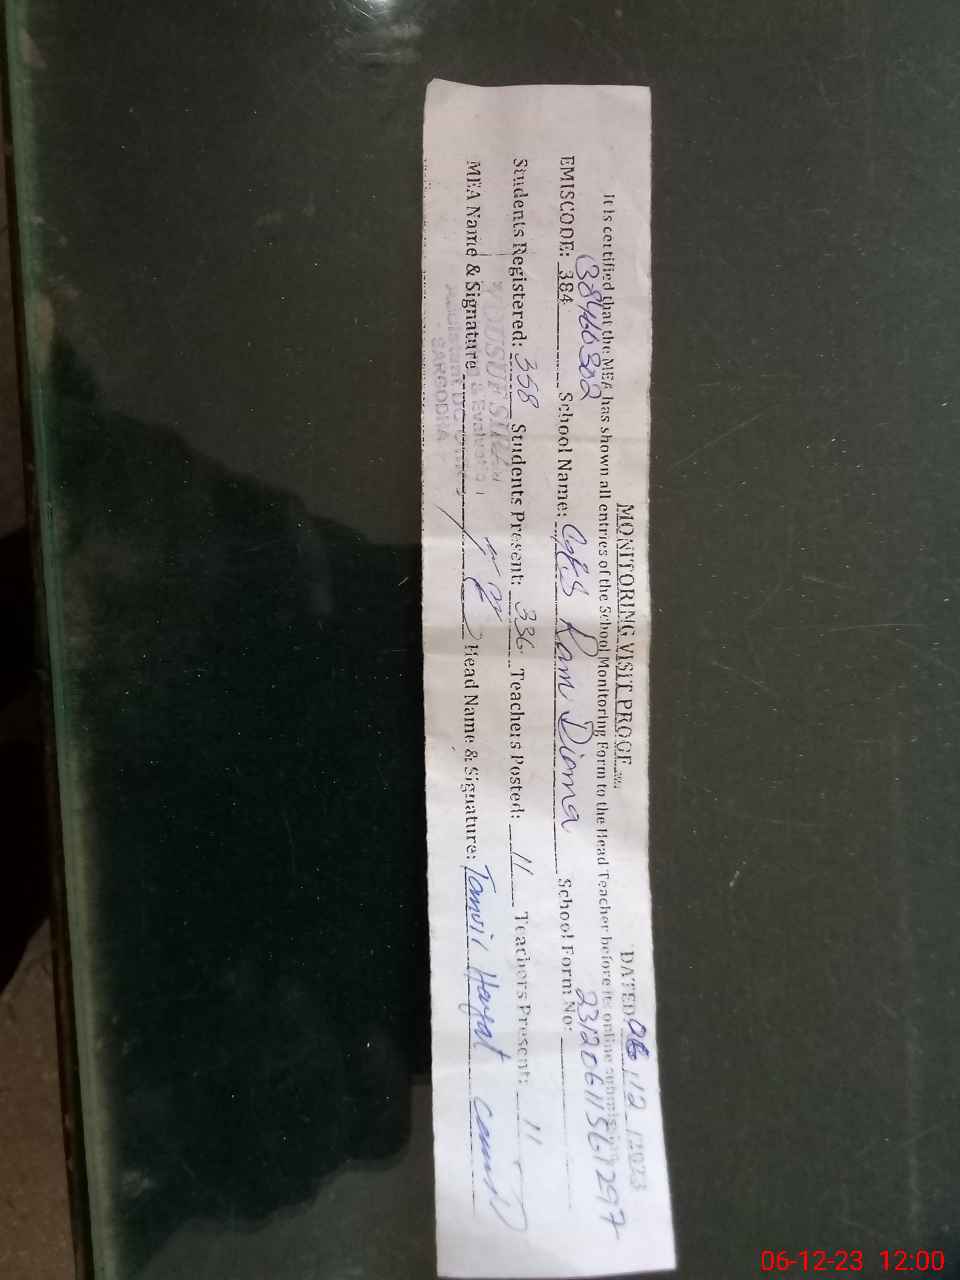 MONITORING VISIT PROOF
DATED 06/12/2023
It is certified that the MEA has shown all entries of the School Monitoring Form to the Head Teacher before its online submission
38460302 23120611561297
EMISCODE: 384 School Name: Ram Diama School Form No:
Students Registered: 358 Students Present: 336 Teachers Posted: 11 Teachers Present: 11
MEA Name & Signature Head Name & Signature: Tanvir Hayat
& Evaluation
Assistant
SARGODHA
06-12-23 12:00